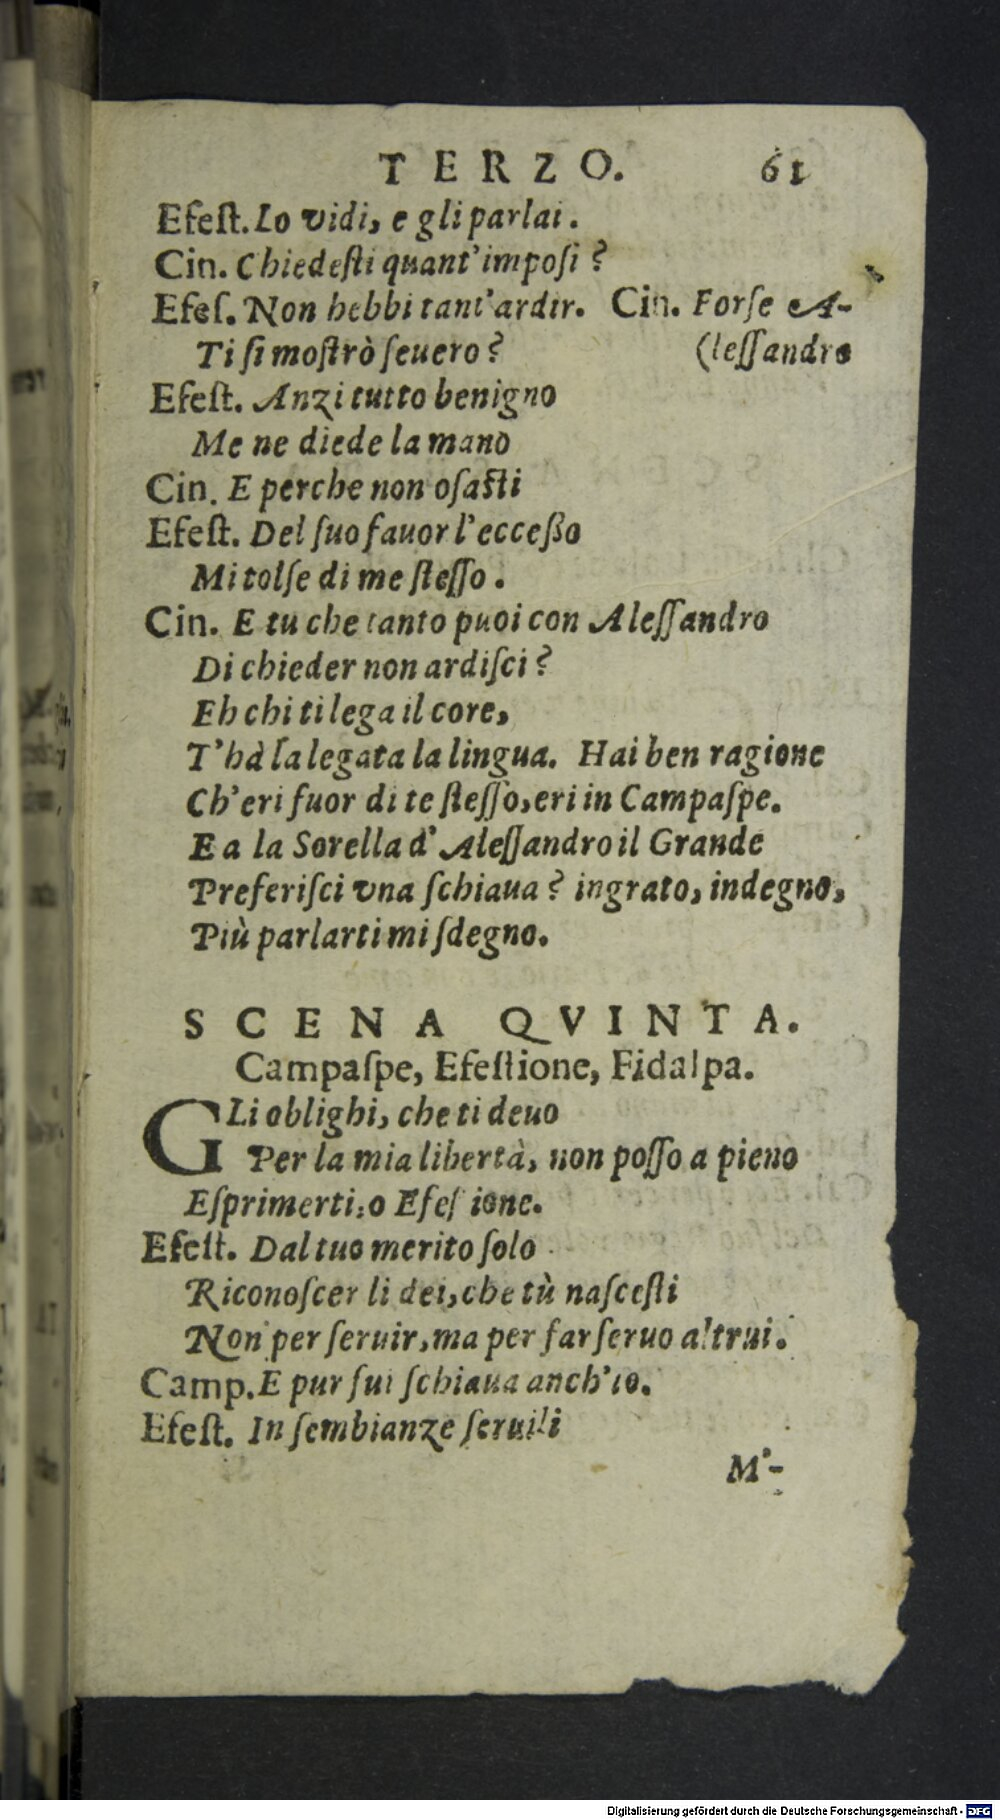 TERZO. 61
Efeſt. Lo vidi, e gli parlai.
Cin. Chiedeſti quant'impoſi?
Efeſ. Non hebbi tant'ardir. Cin. Forſe A-
Ti ſi moſtrò ſeuero? (leſſandro
Efeſt. Anzi tutto benigno
Me ne diede la mano
Cin. E perche non oſaſti
Efeſt. Del ſuo fauor l'ecceßo
Mi tolſe di me ſteſſo.
Cin. E tu che tanto puoi con Aleſſandro
Di chieder non ardiſci?
Eh chi ti lega il core,
T'hà la legata la lingua. Hai ben ragione
Ch'eri fuor di te ſteſſo, eri in Campaſpe.
E a la Sorella d'Aleſſandro il Grande
Preferiſci vna ſchiaua? ingrato, indegno,
Più parlarti mi ſdegno.
SCENA QVINTA.
Campaſpe, Efeſtione, Fidalpa.
GLi oblighi, che ti deuo
Per la mia libertà, non poſſo a pieno
Eſprimerti: o Efeſ ione.
Efeſt. Dal tuo merito ſolo
Riconoſcer li dei, che tù naſceſti
Non per ſeruir, ma per far ſeruo altrui.
Camp. E pur fui ſchiaua anch'io.
Efeſt. In ſembianze ſeruili
M'-
Digitalisierung gefördert durch die Deutsche Forschungsgemeinschaft - DFG